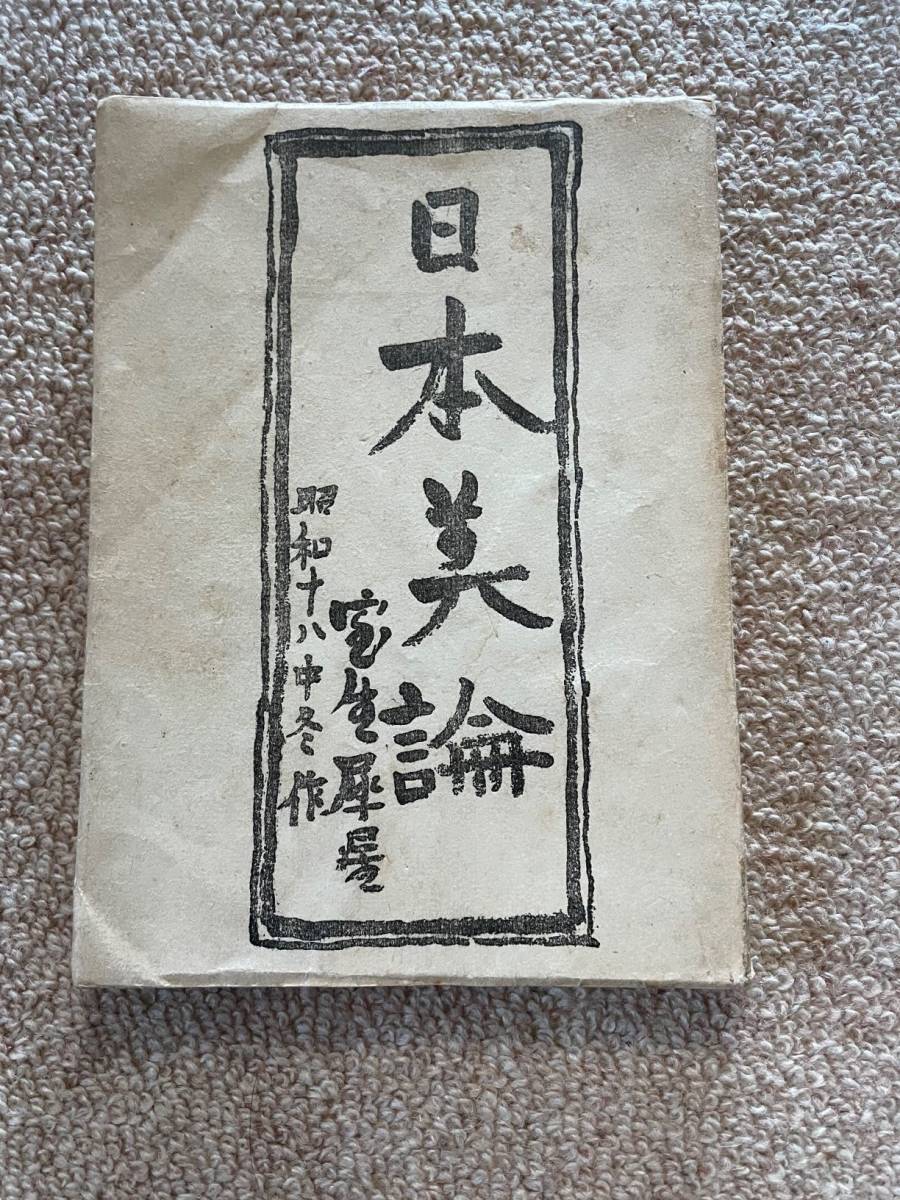 日本美論
室生犀星
昭和十八中冬作